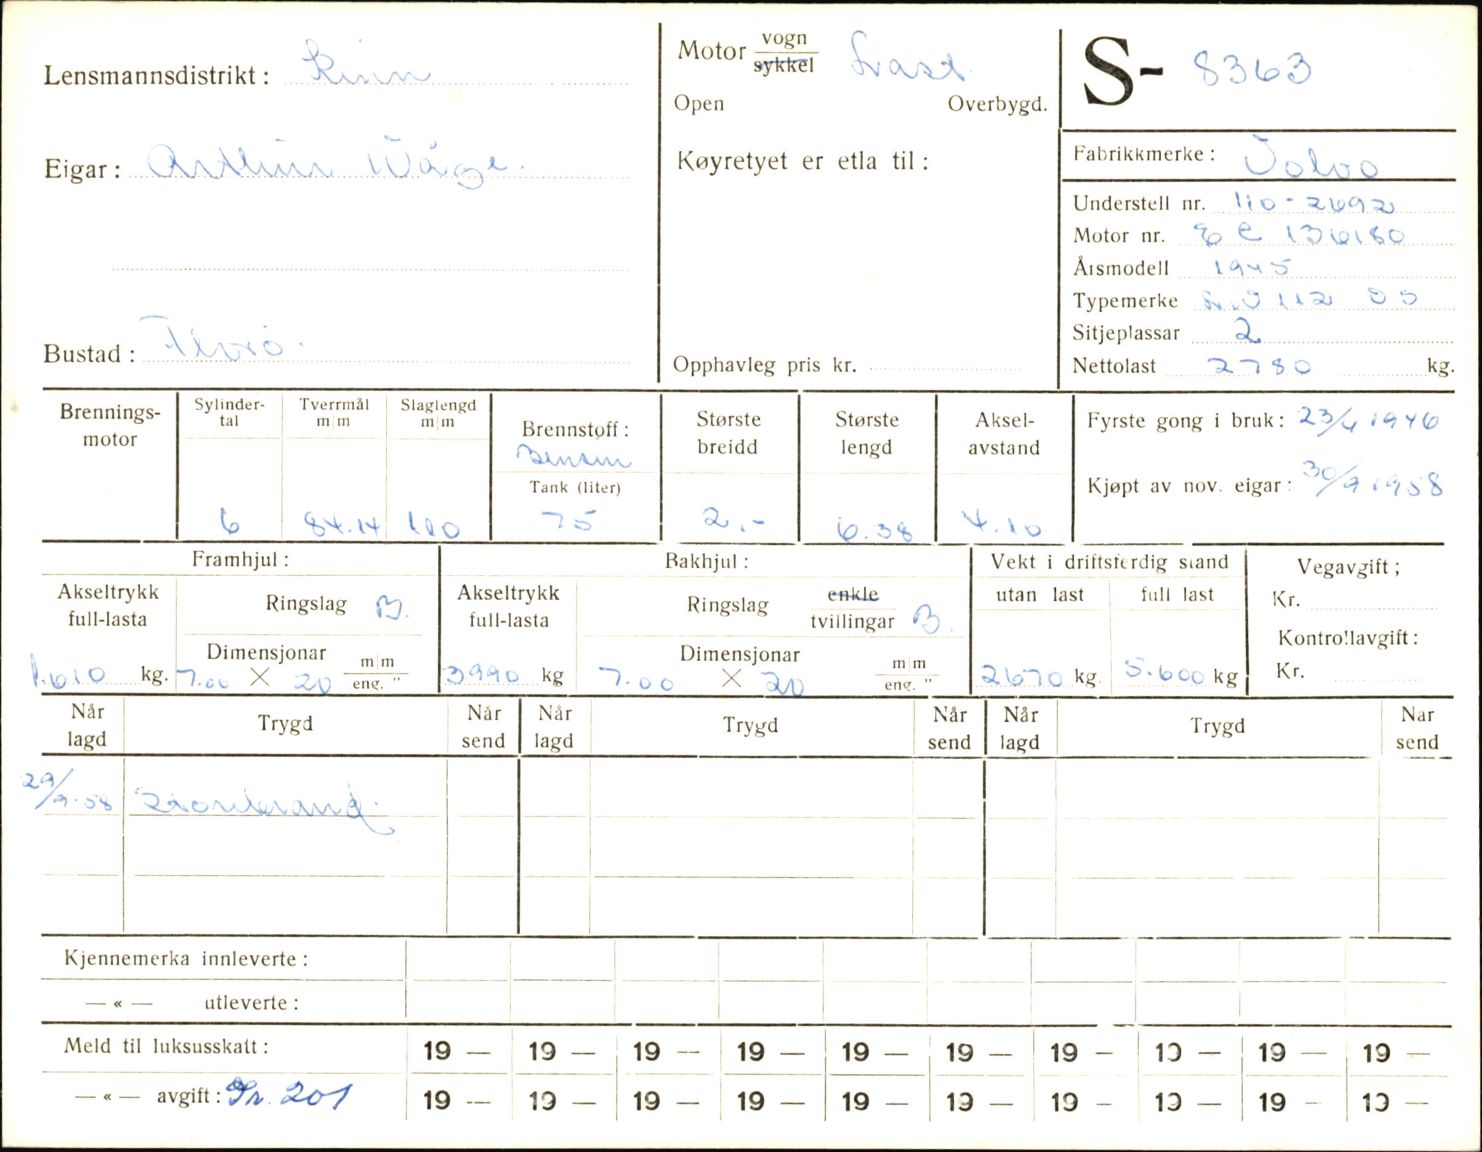 Lensmannsdistrikt: Kinn
Eigar: Arthur Våge.
Bustad: Florø.
Motor vogn
sykkel Last.
Open Overbygd.
Køyretyet er etla til:
Opphavleg pris kr.
S- 8363
Fabrikkmerke: Volvo
Understell nr. 110-2692
Motor nr. E C 136180
Årsmodell 1945
Typemerke L.V 112 DS
Sitjeplassar 2
Nettolast 2780 kg.
Brennings-
motor
Sylinder-
tal
6
Tverrmål
m|m
84.14
Slaglengd
m|m
110
Brennstoff:
Bensin
Tank (liter)
75
Største
breidd
2.-
Største
lengd
6.38
Aksel-
avstand
4.10
Fyrste gong i bruk: 23/4 1946
Kjøpt av nov. eigar: 30/9 1958
Framhjul:
Akseltrykk
full-lasta
1.610 kg.
Ringslag B.
Dimensjonar
7.00 × 20 m|m
eng. "
Bakhjul:
Akseltrykk
full-lasta
3990 kg
Ringslag enkle
tvillingar B.
Dimensjonar
7.00 × 20 m|m
eng. "
Vekt i driftsferdig stand
utan last
2670 kg
full last
5.600 kg
Vegavgift;
Kr.
Kontrollavgift:
Kr.
Når
lagd Trygd Når
send Når
lagd Trygd Når
send Når
lagd Trygd Nar
send
29/9-58 Storebrand.
Kjennemerka innleverte:
— « — utleverte:
Meld til luksusskatt: 19 — 19 — 19 — 19 — 19 — 19 — 19 — 19 — 19 — 19 —
— « — avgift: Gr. 201 19 — 19 — 19 — 19 — 19 — 19 — 19 — 19 — 19 — 19 —